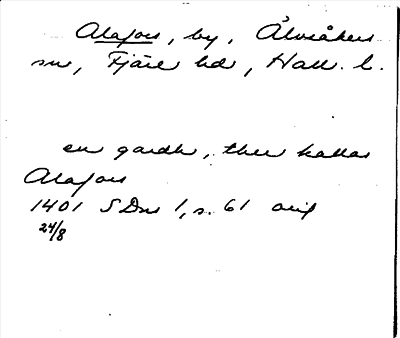 Alafors, by, Älvsåkers
sn, Fjäre hd, Hall. l.
en gardh, ther kallas
Alafors
1401 SDns 1, s. 61 orig
24/8